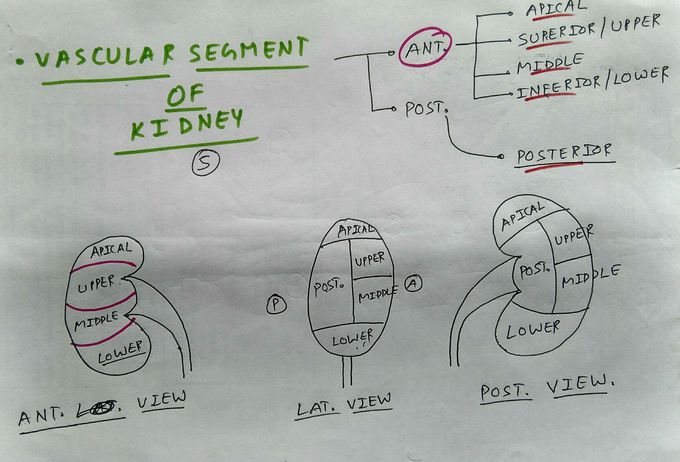 • VASCULAR SEGMENT
OF
KIDNEY
5
ANT.
APICAL
SUPERIOR/UPPER
MIDDLE
INFERIOR/LOWER
POST.
POSTERIOR
APICAL
UPPER
MIDDLE
LOWER
ANT. VIEW
APICAL
POST.
UPPER
MIDDLE
LOWER
P
A
LAT. VIEW
APICAL
UPPER
POST.
MIDDLE
LOWER
POST. VIEW.